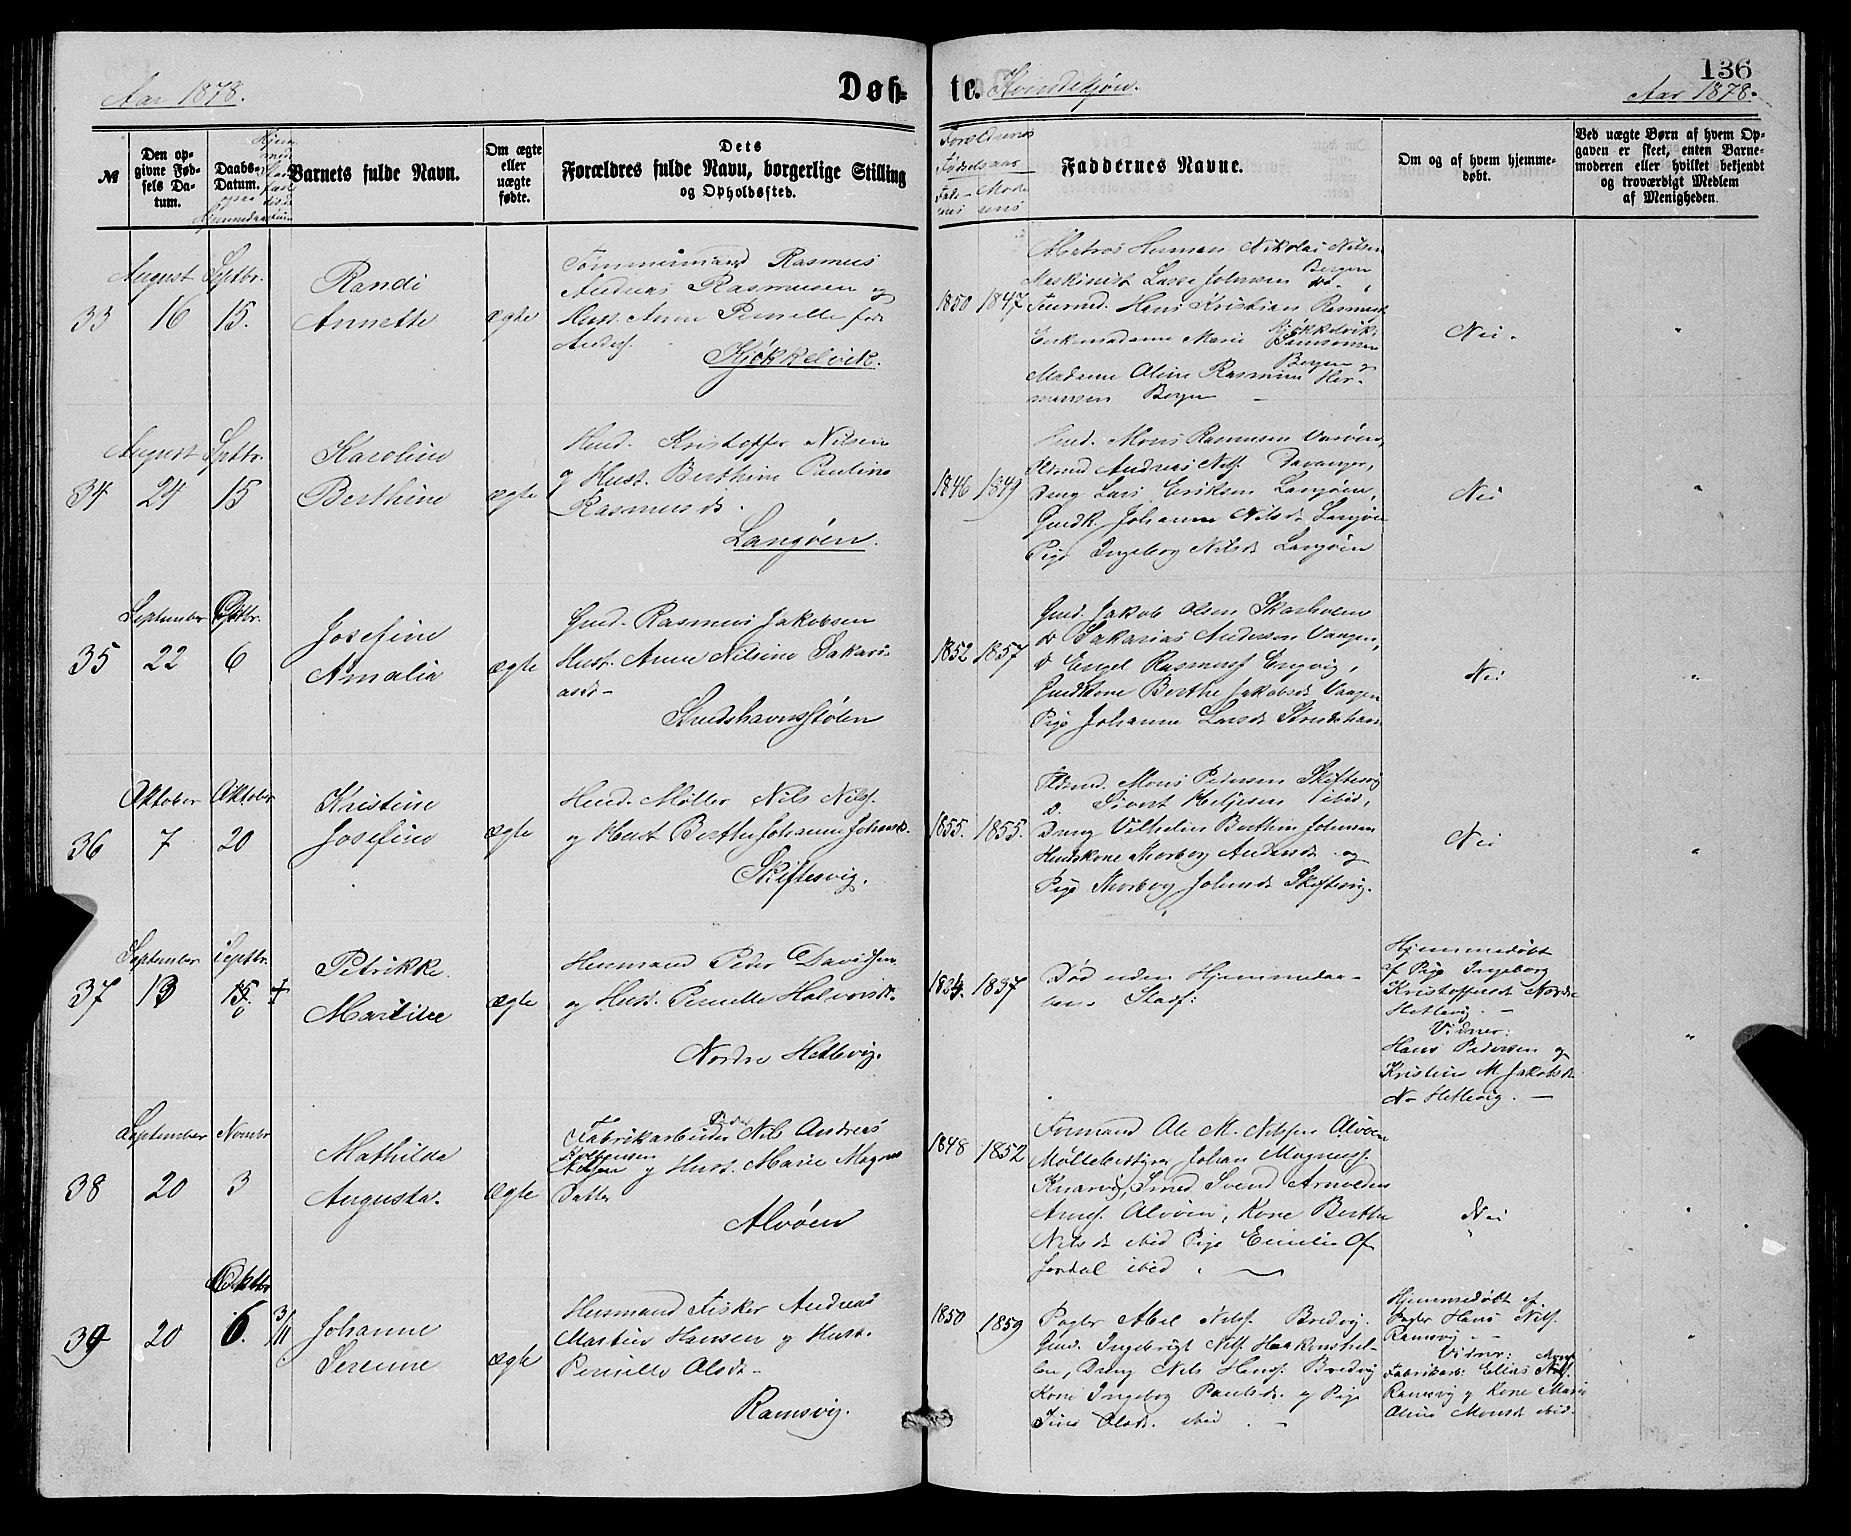 136
Aar 1878.
Døb-
te. Kvindekjøn.
Aar 1878.
№
Den op-
givne Fød-
sels Da-
tum.
Daabs-
Datum.
Barnets fulde Navn.
Om ægte
eller
uægte
fødte.
Dets
Forældres fulde Navn, borgerlige Stilling
og Opholdssted.
Forældrenes
Fødselsaar
Fade- Mode-
rens rens
Faddernes Navne.
Om og af hvem hjemme-
døbt.
Ved uægte Børn af hvem Op-
gaven er skeet, enten Barne-
moderen eller hvilket bekjendt
og troværdigt Medlem
af Menigheden.
33
August
16
Septbr.
15.
Randi
Annette
ægte
Tømmermand Rasmus
Andreas Rasmusen og
Hust. Anne Pernille født
Anders.
Kjøkkelvik.
1850 1847
Matros Herman Nikolai Nilsen
Bergen
Maskinist Lasse Johnsen do.
Hans Kristian Rasmus.
Kjøkkelvik,
Enkemadame Marie Samsonsen
Bergen og
Madame Oline Rasmine Her-
mansen Bergen
Nei.
"
34
August
24
Septbr.
15
Karoline
Berthine
ægte
Husd. Kristoffer Nilsen
og Hust. Berthine Pauline
Rasmusd.
Langøen.
1846 1849
Gmd. Mons Rasmusen
Andreas Nils. Davanger,
Dreng Lars Eriksen Langøen,
Gmdk. Johanne Nilsd. Langøen
Pige Ingeborg Nilsd. Langøen
Nei
"
35
September
22
6
Josefine
Amalia
ægte
Gmd. Rasmus Jakobsen
Hust. Anne Nilsine Sakari-
asd.
Strudshavnsstølen
1852 1857
Gmd. Jakob Olsen Skarholmen
do Sakarias Andersen Vaagen,
do Engel Rasmuss. Engvig,
Gmdkone Berthe Jakobsd. Vaagen
Pige Johanne Larsd. Strudshavn
Nei
"
36
Oktober
7
Oktober
20
Kristine
Josefine
ægte
Husd. Møller Nils Nils.
og Hust. Berthe Johanne Johansd.
Skiftesvig.
1855. 1855.
Mons Pedersen Skiftesvig
d. Sivert Heljesen ibid,
Dreng Vilhelm Berthin Johnsen
Husdskone Thorborg Andersd. og
Pige Thorborg Johnsd. Skiftesvig.
Nei
"
37
September
13
Septbr.
15.
+
Petrikke
Martine
ægte
Husmand Peder Davidsen
og Hust. Pernille Halvorsd.
Nordre Hetlevig.
1824. 1837
Død uden Hjemmedaa-
bens Stadf:
Hjemmedøbt
af Pige Ingeborg
Kristoffersd. Nordre
Hetlevig. –
Vidner:
Hans Pedersen og
Kristine M. Jakobsd.
N. Hetlevig. –
"
38
September
20
Novembr
3
Mathilda
Augusta.
ægte
Peder
Fabrikarbeider Nils Andreas
og Hust. Marie Magnus
Datter
Alvøen
1848 1852
Formand Ole M. Nilsen Alvøen
Møllebestyrer Johan Magnuss.
Knarvig, Smed Svend Arnoldus
Arnes. Alvøen, Kone Berthe
Nilsd. ibid Pige Emilie Of
ibid.
Nei
"
39
20
Oktbr
6.
3/11
Johanne
Sereine
ægte
Husmand Fisker Andreas
Martin Hansen og Hust.
Pernille Olsd.
Ramsvig.
1850 1859
Pagter Abel Nils. Bredvig.
Gmd. Ingebrigt Nils. Haakonshel-
len, Dreng Nils Hans. Bredvig
Kone Ingeborg Paulsd. og Pige
Olsd. ibid.
Hjemmedøbt af
Pagter Hans Nils.
Ramsvig
Vidner:
Fabrikarb. Elias
Ramsvig og Kone Marie
Oline Monsd. ibid.
"